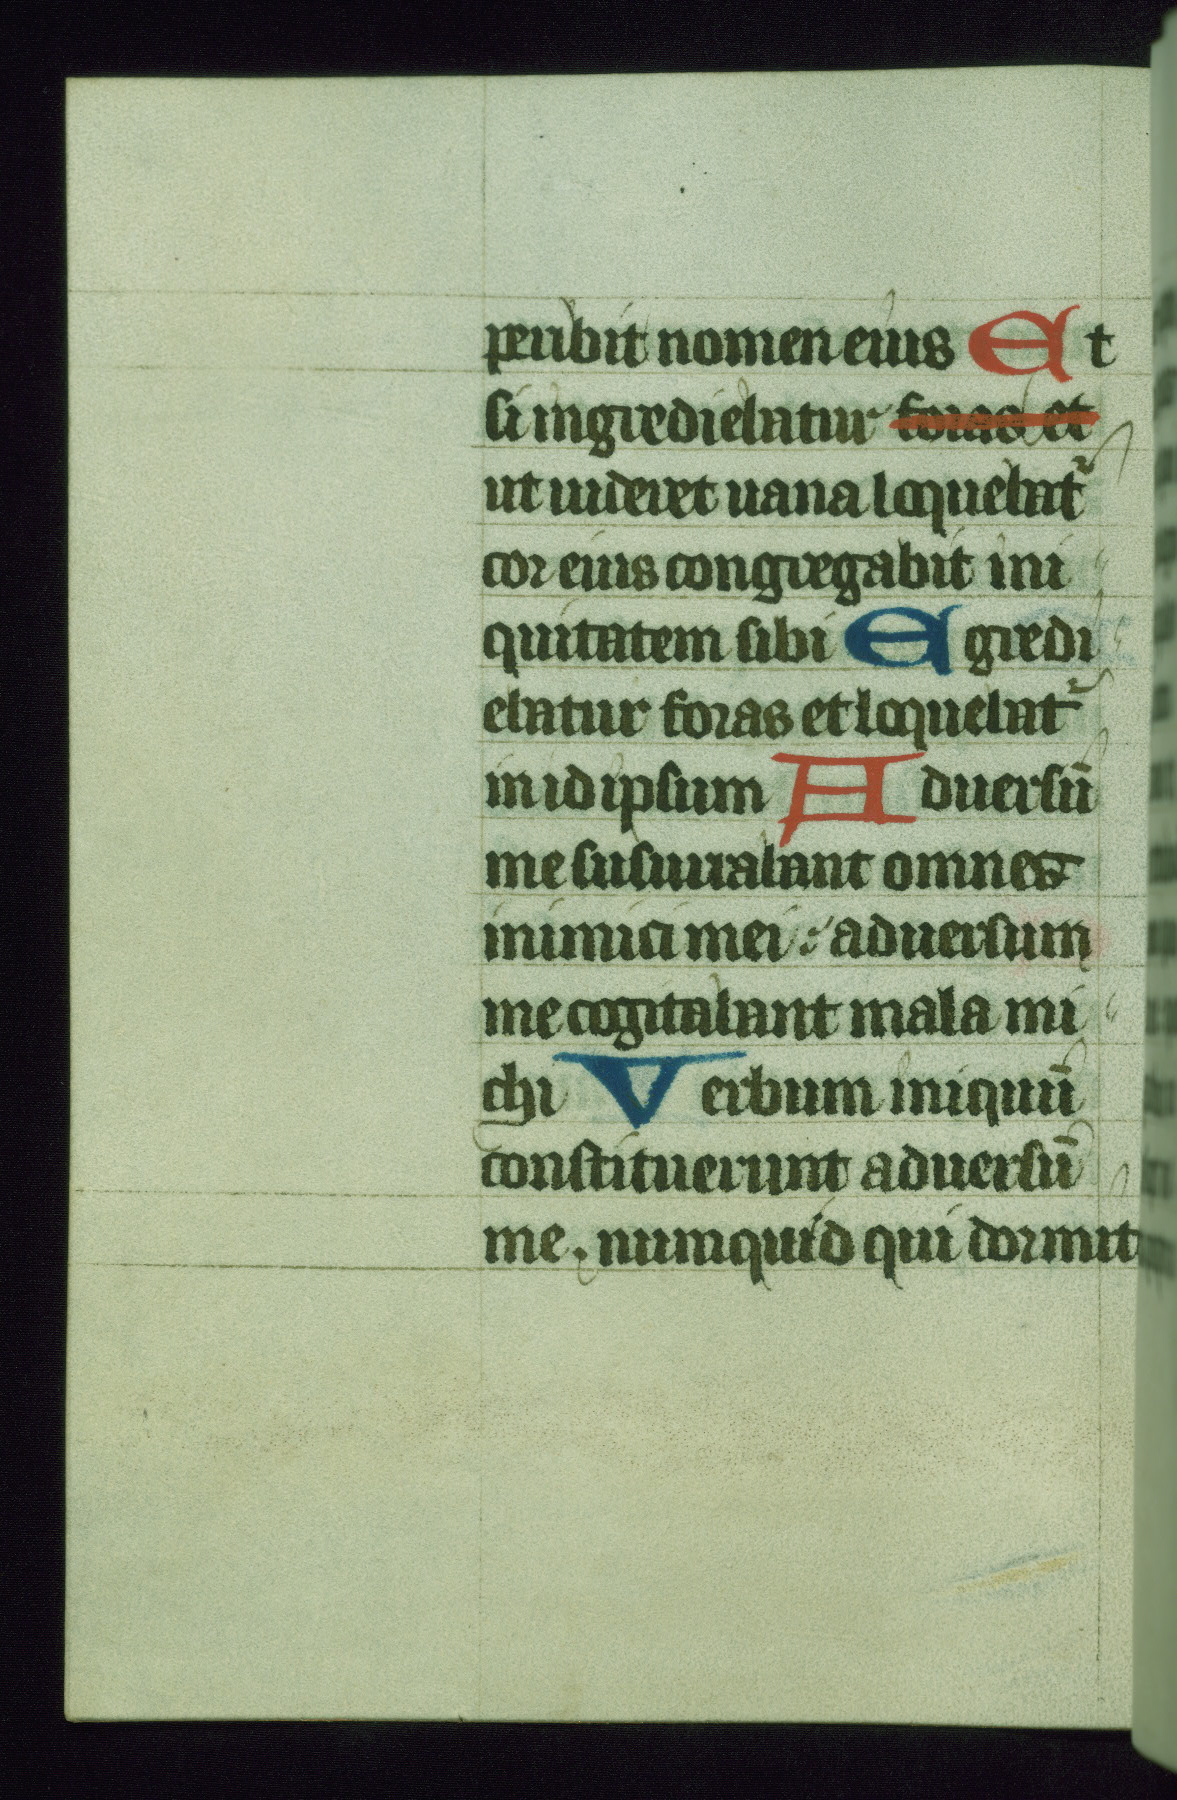 peribit nomen eius Et
si ingrediebatur foras et
ut uideret uana loquebat᷑
cor eius congregabit ini
quitatem sibi Egredi
ebatur foras et loquebat᷑
in id ipsum Aduersū
me susurrabant omnes
inimici mei : aduersum
me cogitabant mala mi
chi Verbum iniquū
constituerunt aduersū
me . numquid qui dormit